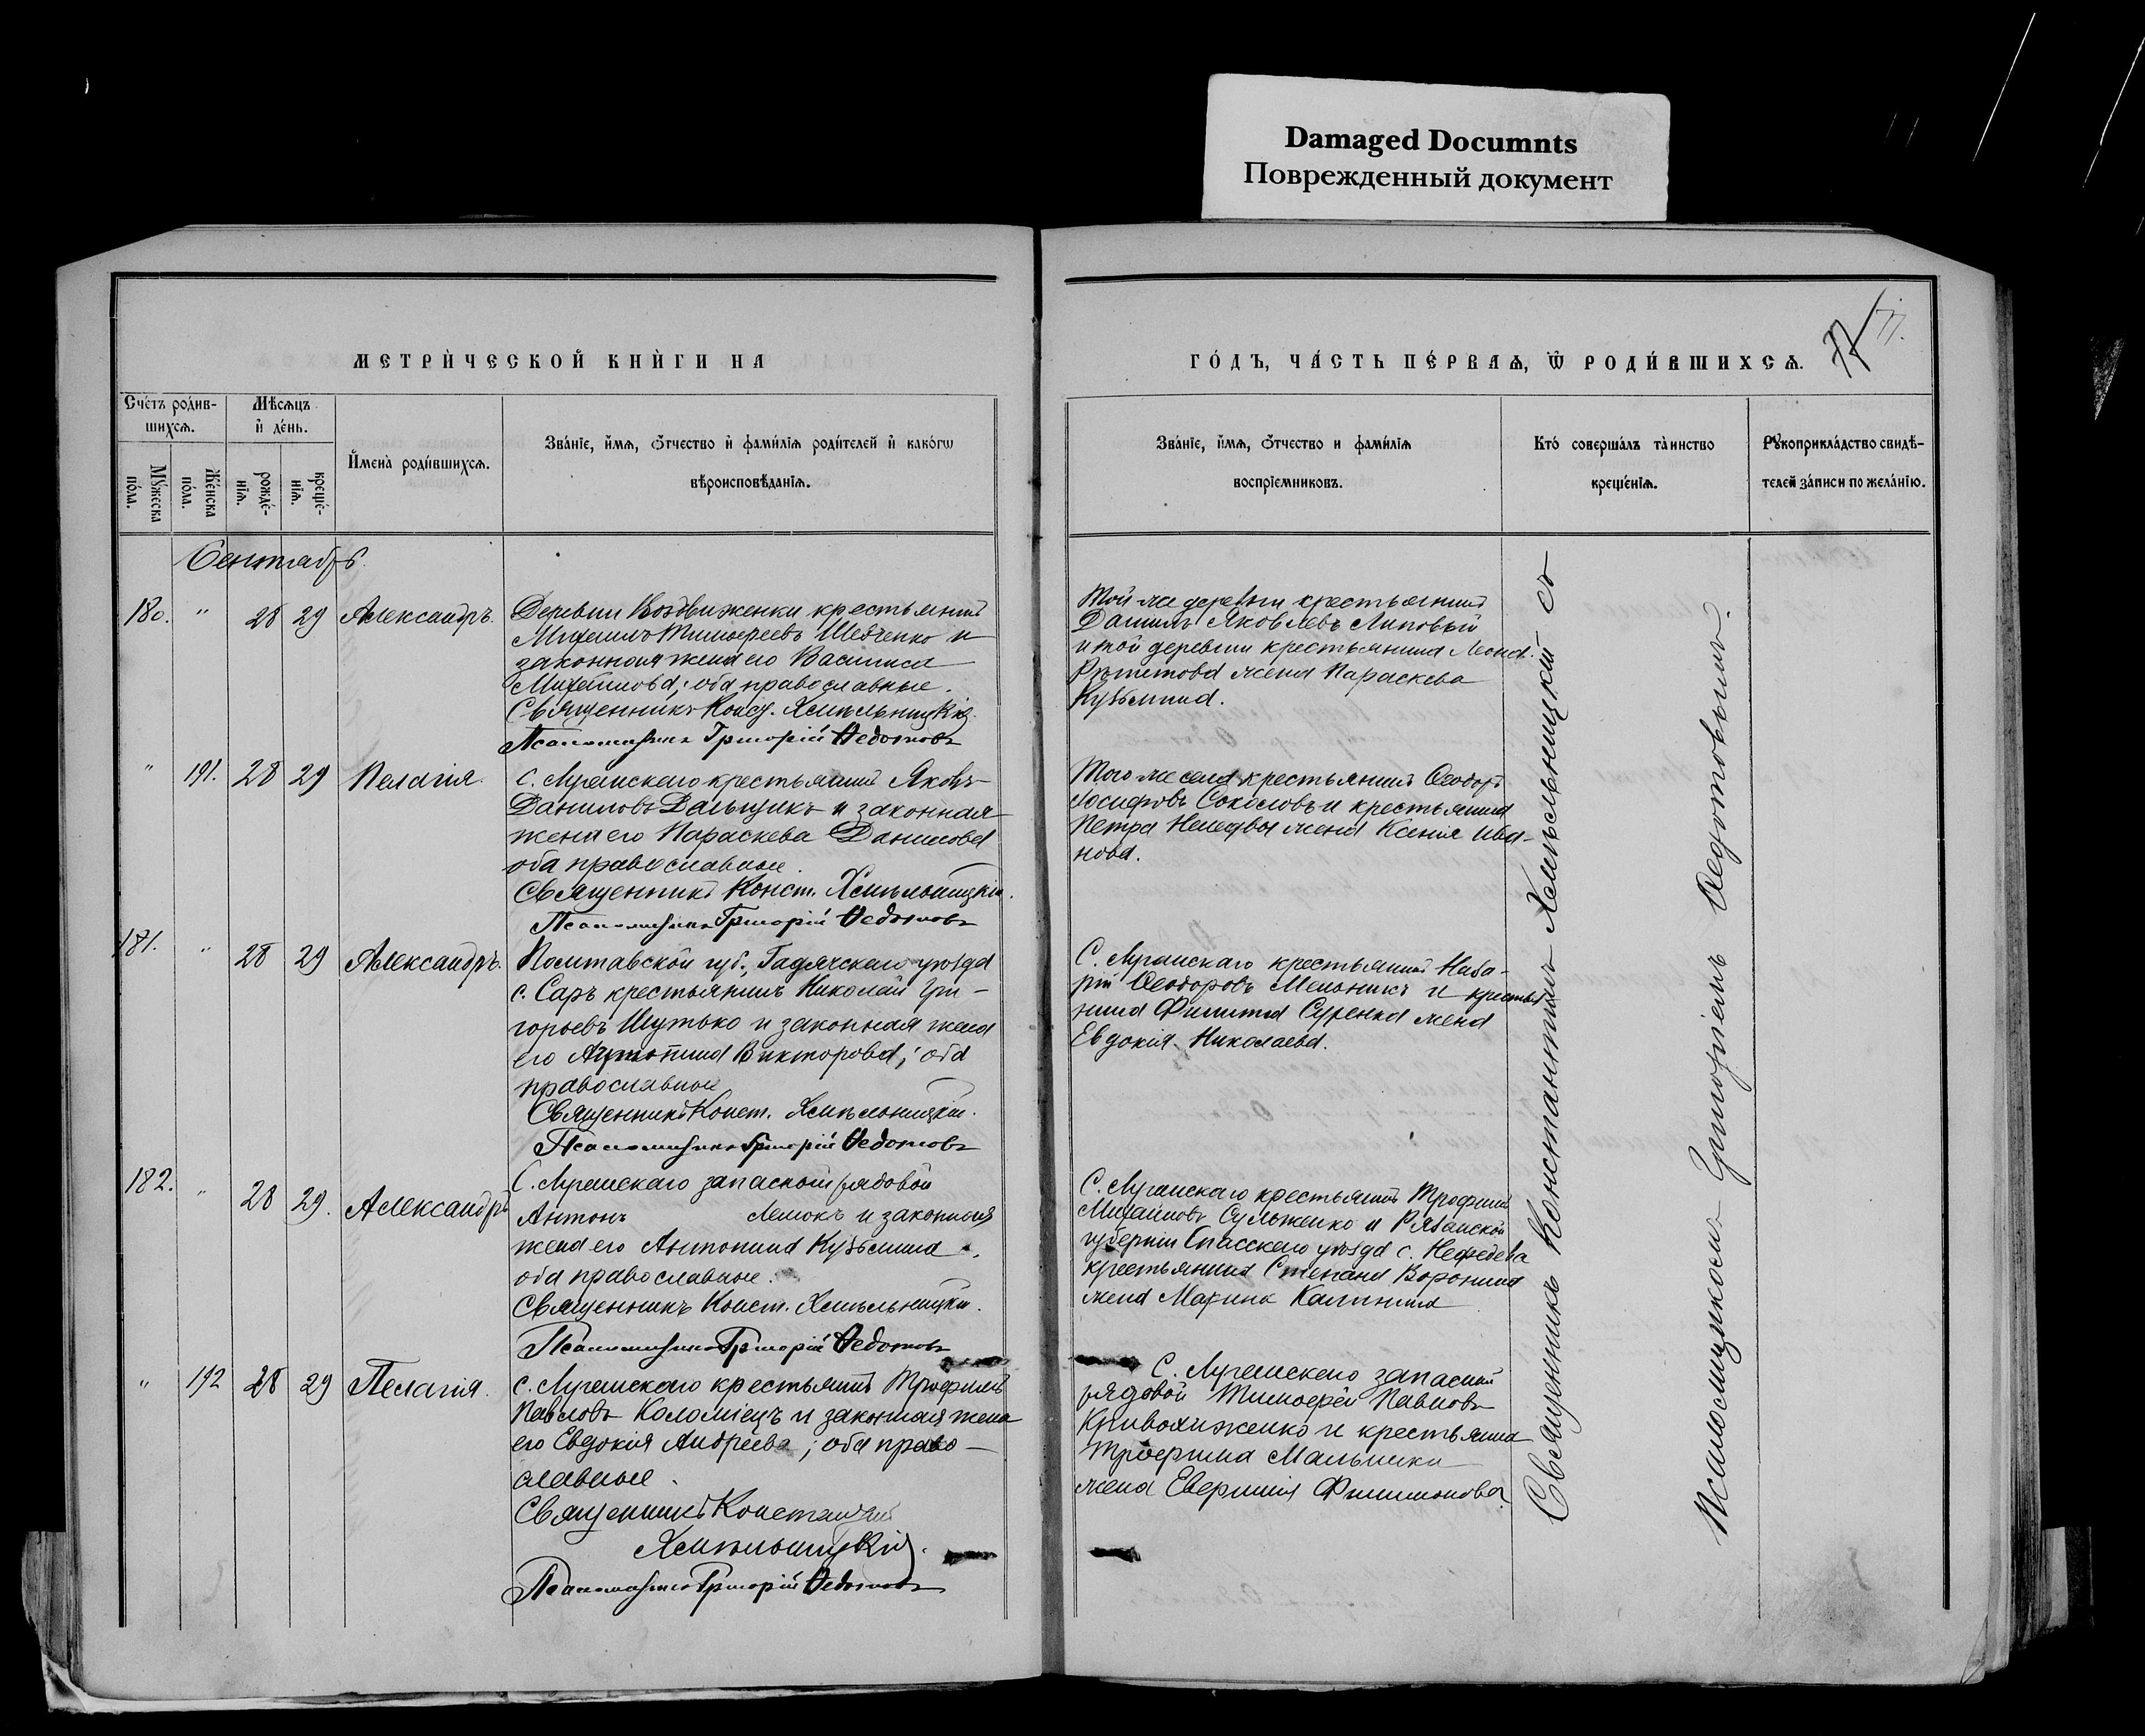 Damaged Documnts
Поврежденный документ
МЕТРИ́ЧЕСКОЙ КНИ́ГИ НА
ГО́ДЪ, ЧА́СТЬ ПЕ́РВАѦ, Ѿ РОДИ́ВШИХСѦ.
Сче́тъ роди́в-
шихсѧ.
Мꙋ́жеска
по́ла.
Же́нска
по́ла.
Мѣ́сѧцъ
и҆ де́нь.
рожде́-
нїѧ.
креще́-
нїѧ.
И҆мена̀ роди́вшихсѧ.
Зва́нїе, и҆́мѧ, ѻ҆́тчество и҆ фамѝлїѧ роди́телей и҆ како́гѡ
вѣроисповѣ́данїѧ.
Зва́нїе, и҆́мѧ, ѻ҆́тчество и фами́лїѧ
воспрїе́мниковъ.
Кто́ соверша́лъ та̀инство
креще́нїѧ.
Рꙋкоприкла́дство свидѣ́-
телей за́писи по жела́нїю.
Сентябрь.
180. " 28 29 Александръ.
Деревни Воздвиженки крестьянинъ
Михаилъ Тимофеевъ Шевченко и
законная жена его Василиса
Михайлова; оба православные.
Священникъ Конст. Хмѣльницкій.
Псаломщикъ Григорій Ѳедотовъ
Той же деревни крестьянинъ
Даніилъ Яковлевъ Липовый
и той деревни крестьянина
жена Параскева
Кузьмина.
" 191. 28 29 Пелагія.
с. Луганскаго крестьянинъ Яковъ
Даниловъ Дальщикъ и законная
жена его Параскева Данилова
оба православные.
Священникъ Конст. Хмѣльницкій.
Псаломщикъ Григорій Ѳедотовъ
Того же села крестьянинъ Ѳеодоръ
Іосифовъ Соколовъ и крестьянина
Петра жена Ксенія Ива-
нова.
181. " 28 29 Александръ.
Полтавской губ., Гадячскаго уѣзда
с. Саръ крестьянинъ Николай Гри-
горьевъ Шутько и законная жена
его Антонина Викторова; оба
православные
Священникъ Конст. Хмѣльницкій.
Псаломщикъ Григорій Ѳедотовъ
С. Луганскаго крестьянинъ Наза-
рій Ѳеодоровъ Мельникъ и крестья
нина Филиппа Суренка жена
Евдокія Николаева.
182. " 28 29. Александръ
С. Луганскаго запасный рядовой
Антонъ Лемокъ и законная
жена его Антонина Кузьмина,
оба православные.
Священникъ Конст. Хмѣльницкій.
Псаломщикъ Григорій Ѳедотовъ
С. Луганскаго крестьянинъ Трофимъ
Михайловъ Сульженко и Рязанской
губерніи Спасскаго уѣзда с. Нефедева
крестьянина Степана Воронина
жена Марина Калинина
" 192 28 29 Пелагія.
с. Луганскаго крестьянинъ Трофимъ
Павловъ Коломіецъ и законная жена
его Евдокія Андреева; оба право-
славные.
Священникъ Константинъ
Хмѣльницкій.
Псаломщикъ Григорій Ѳедотовъ
С. Луганскаго запасный
рядовой Тимофей Павловъ
Кривохиженко и крестьянина
Трофима
жена Евфимія Филимонова.
Священникъ Константинъ Хмѣльницкій съ
Псаломщикомъ Григоріемъ Ѳедотовымъ.